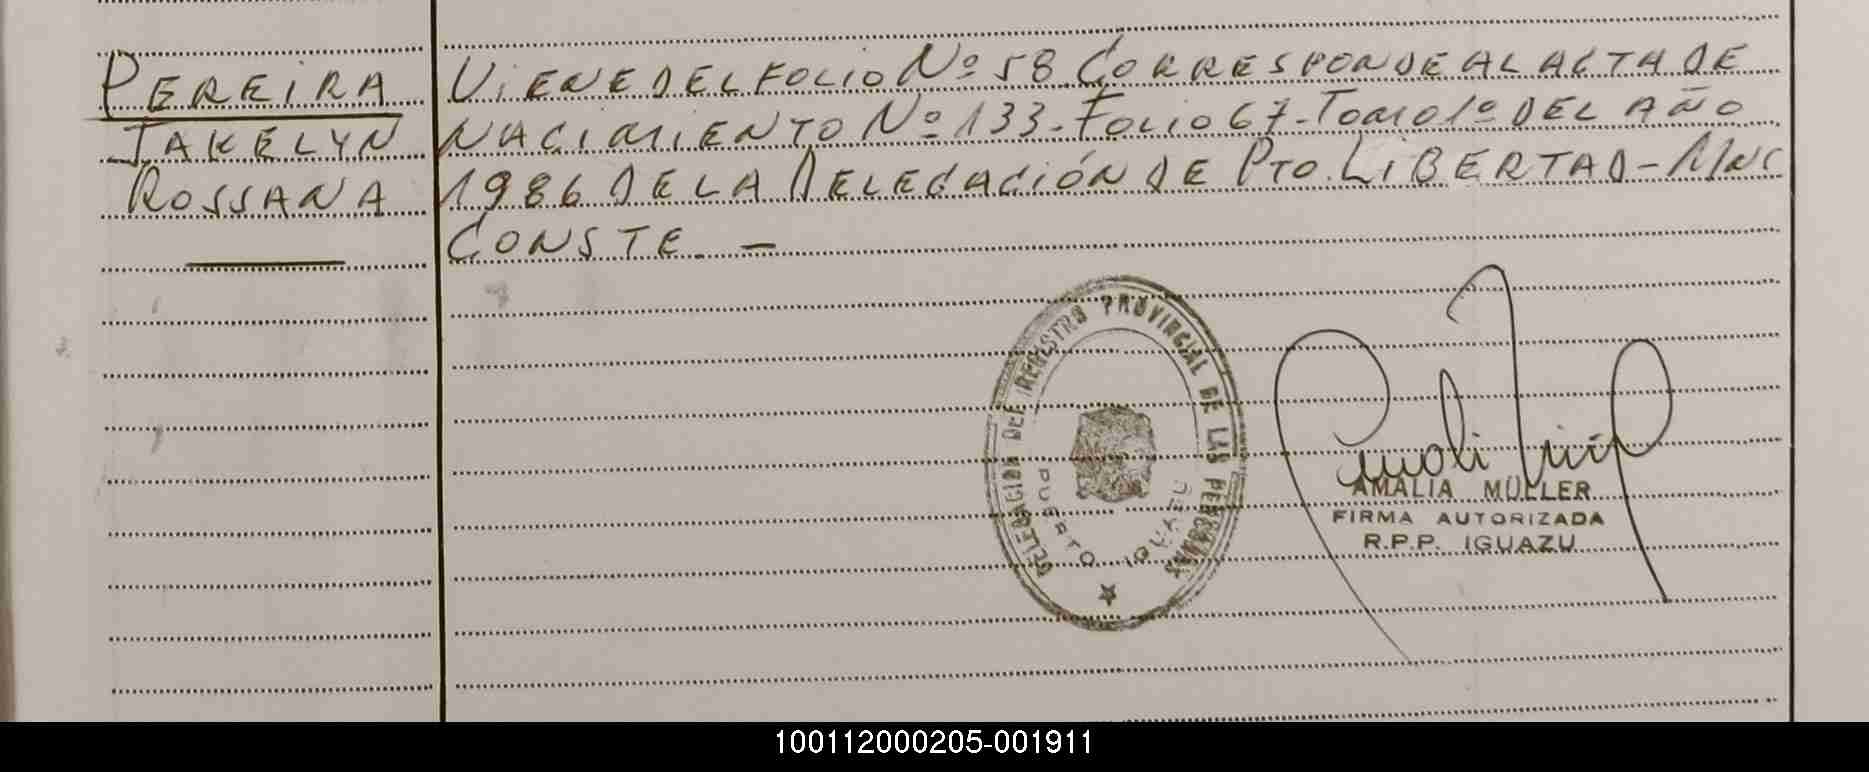 PEREIRA
JAKELYN
ROSSANA
VIENE DEL FOLIO Nº 58. CORRESPONDE AL ACTA DE
NACIMIENTO Nº 133-FOLIO 67-TOMO 1º DEL AÑO
1986 DE LA DELEGACIÓN DE PTO. LIBERTAD-MNES
CONSTE.-
DELEGACION DEL REGISTRO PROVINCIAL DE LAS PERSONAS
PUERTO IGUAZU
AMALIA MÜLLER
FIRMA AUTORIZADA
R.P.P. IGUAZU
100112000205-001911